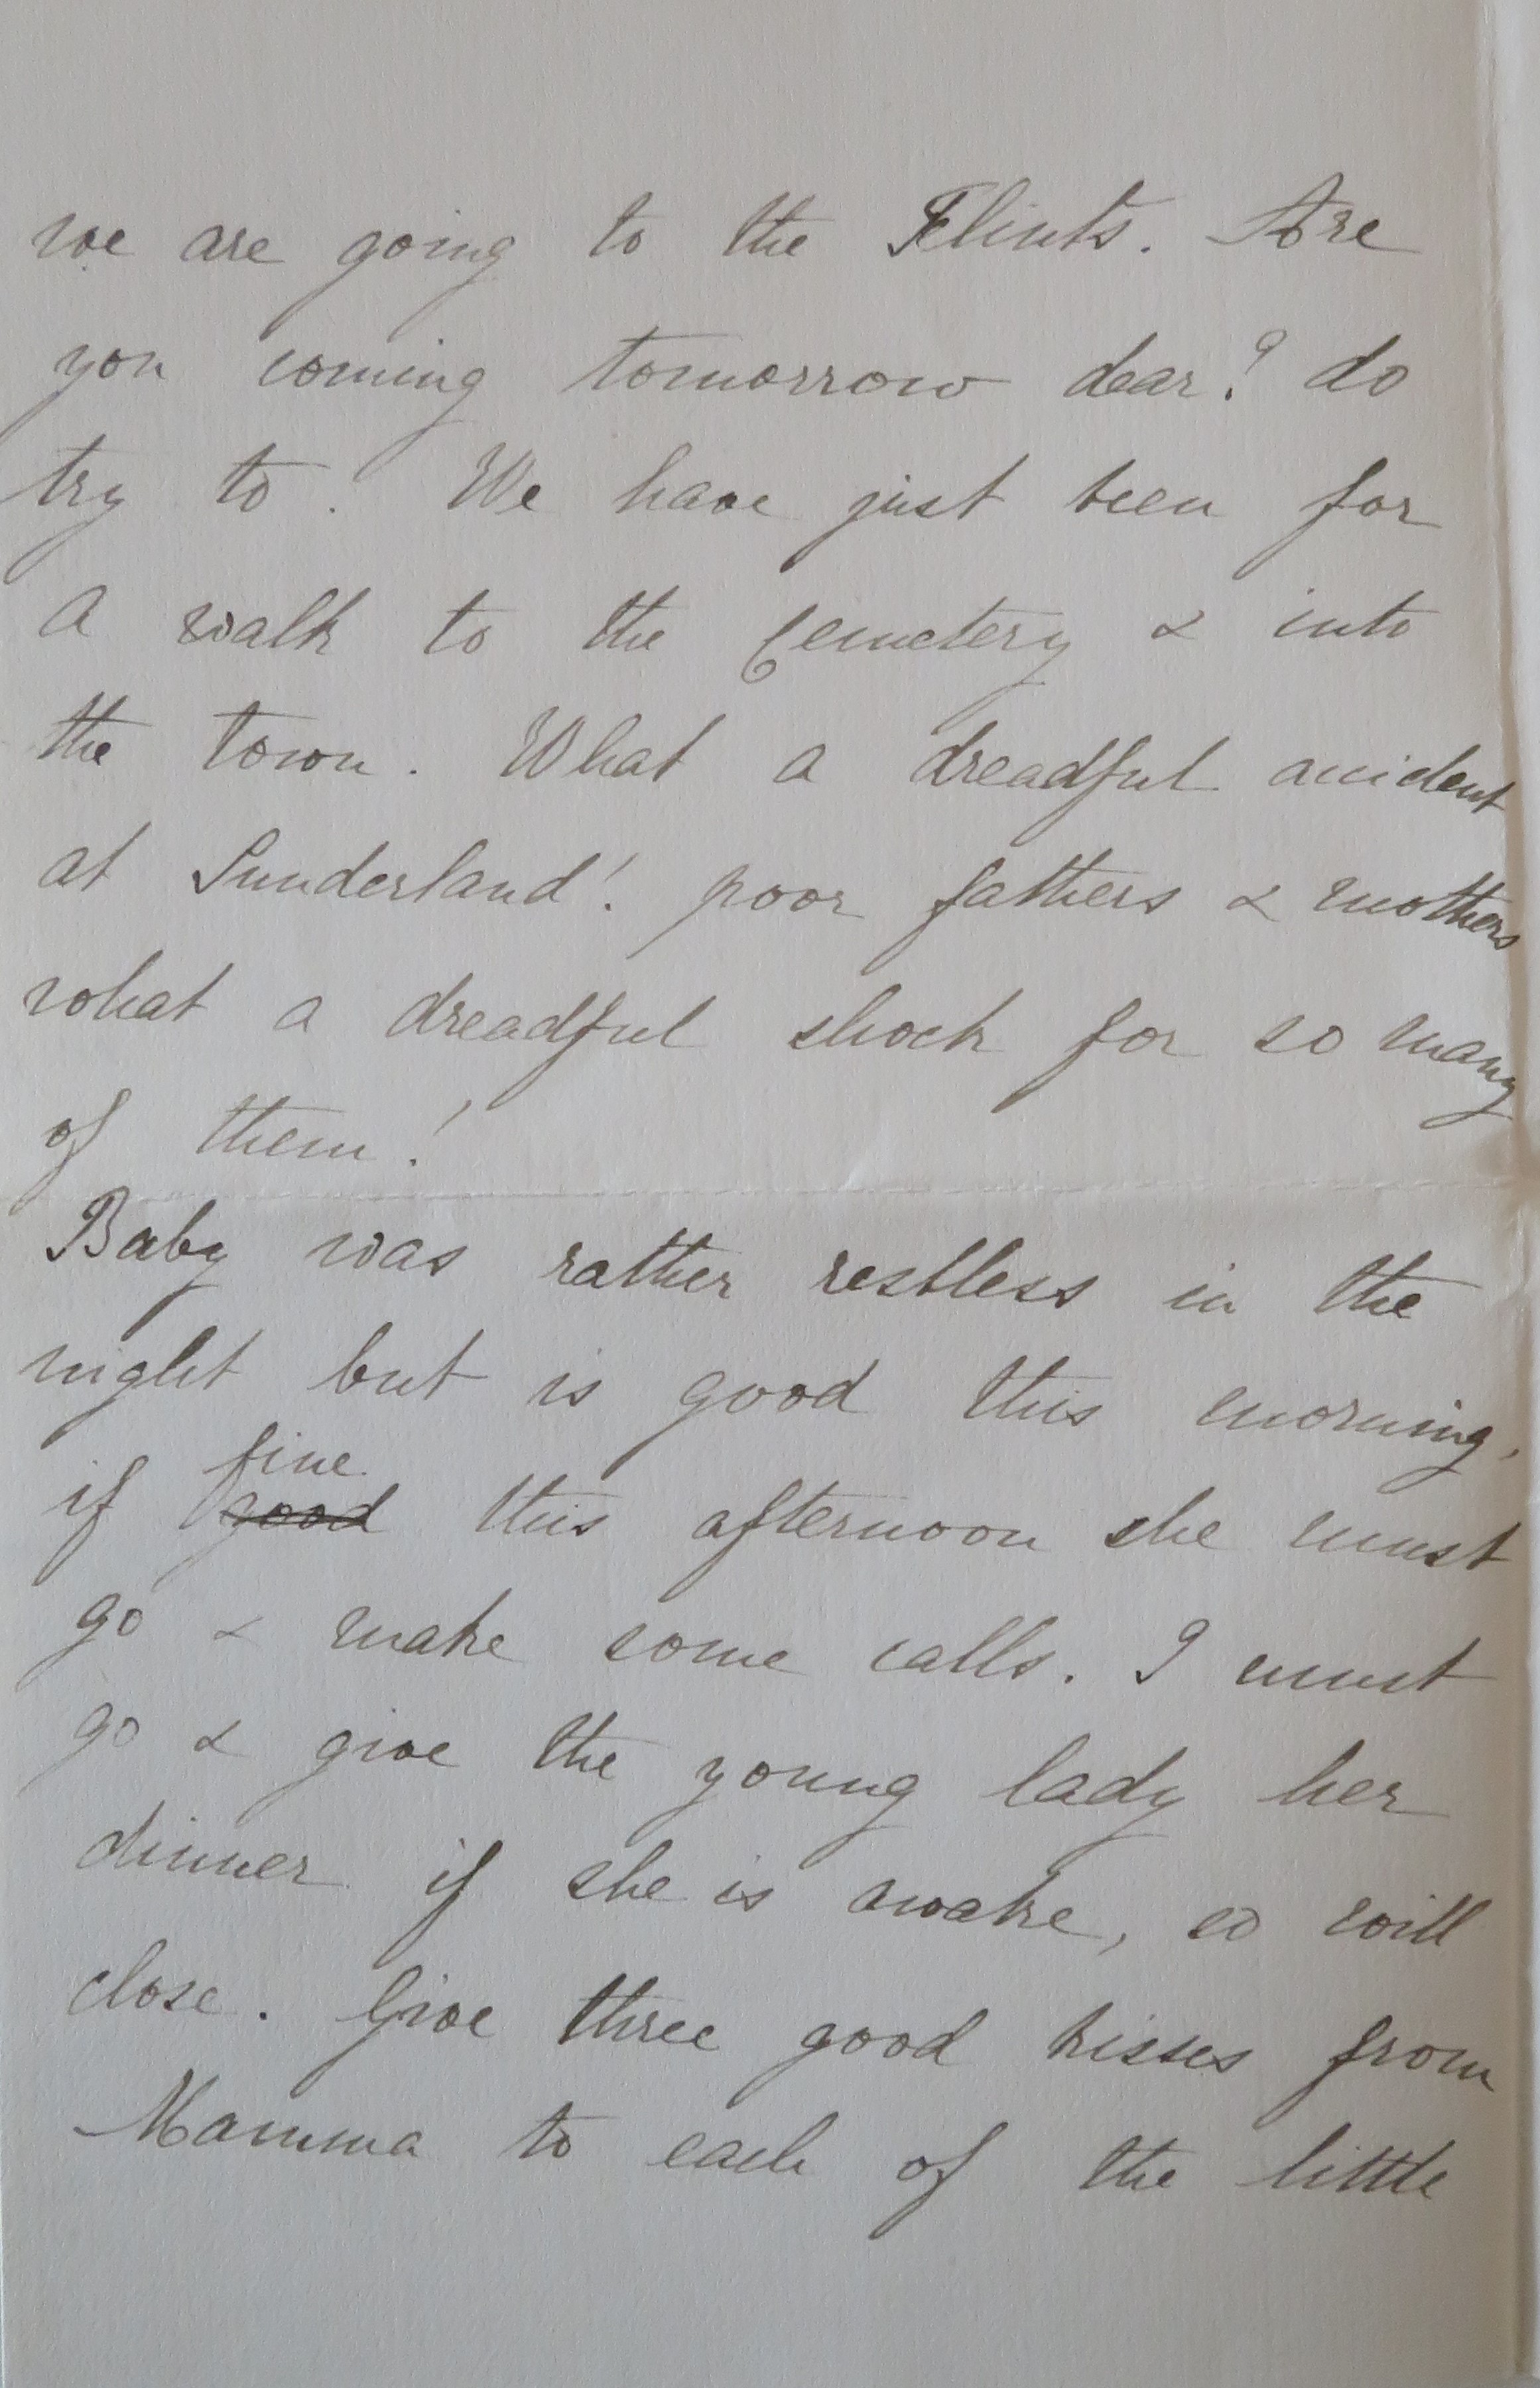 we are going to the Flints. Are
you coming tomorrow dear? do
try to. We have just been for
a walk to the Cemetery & into
the town. What a dreadful accident
at Sunderland! poor fathers & mothers
what a dreadful shock for so many
of them!
Baby was rather restless in the
night but is good this morning,
fine
if good this afternoon she must
go & make some calls. I must
go & give the young lady her
dinner if she is awake, so will
close. Give three good kisses from
Mamma to each of the little